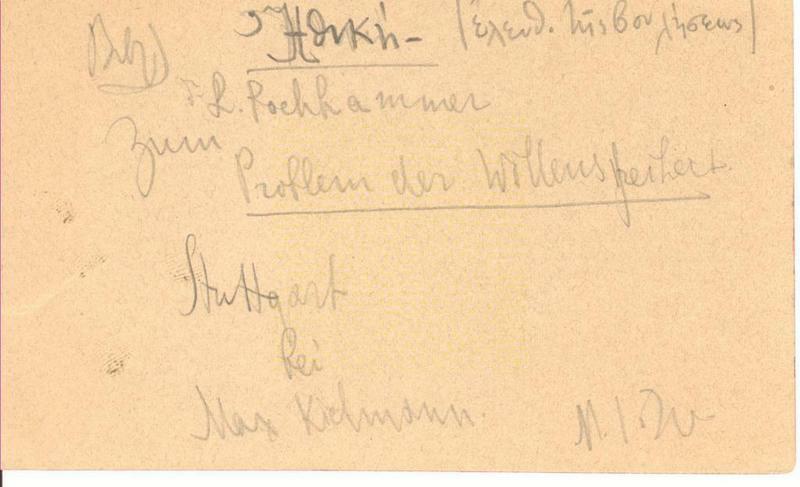 Ἠθική – (ἐλευθ. τῆς βουλήσεως)
L. Pochhammer
Zum
Problem der Willensfreiheit
Stuttgart
bei
Max Kielmann.